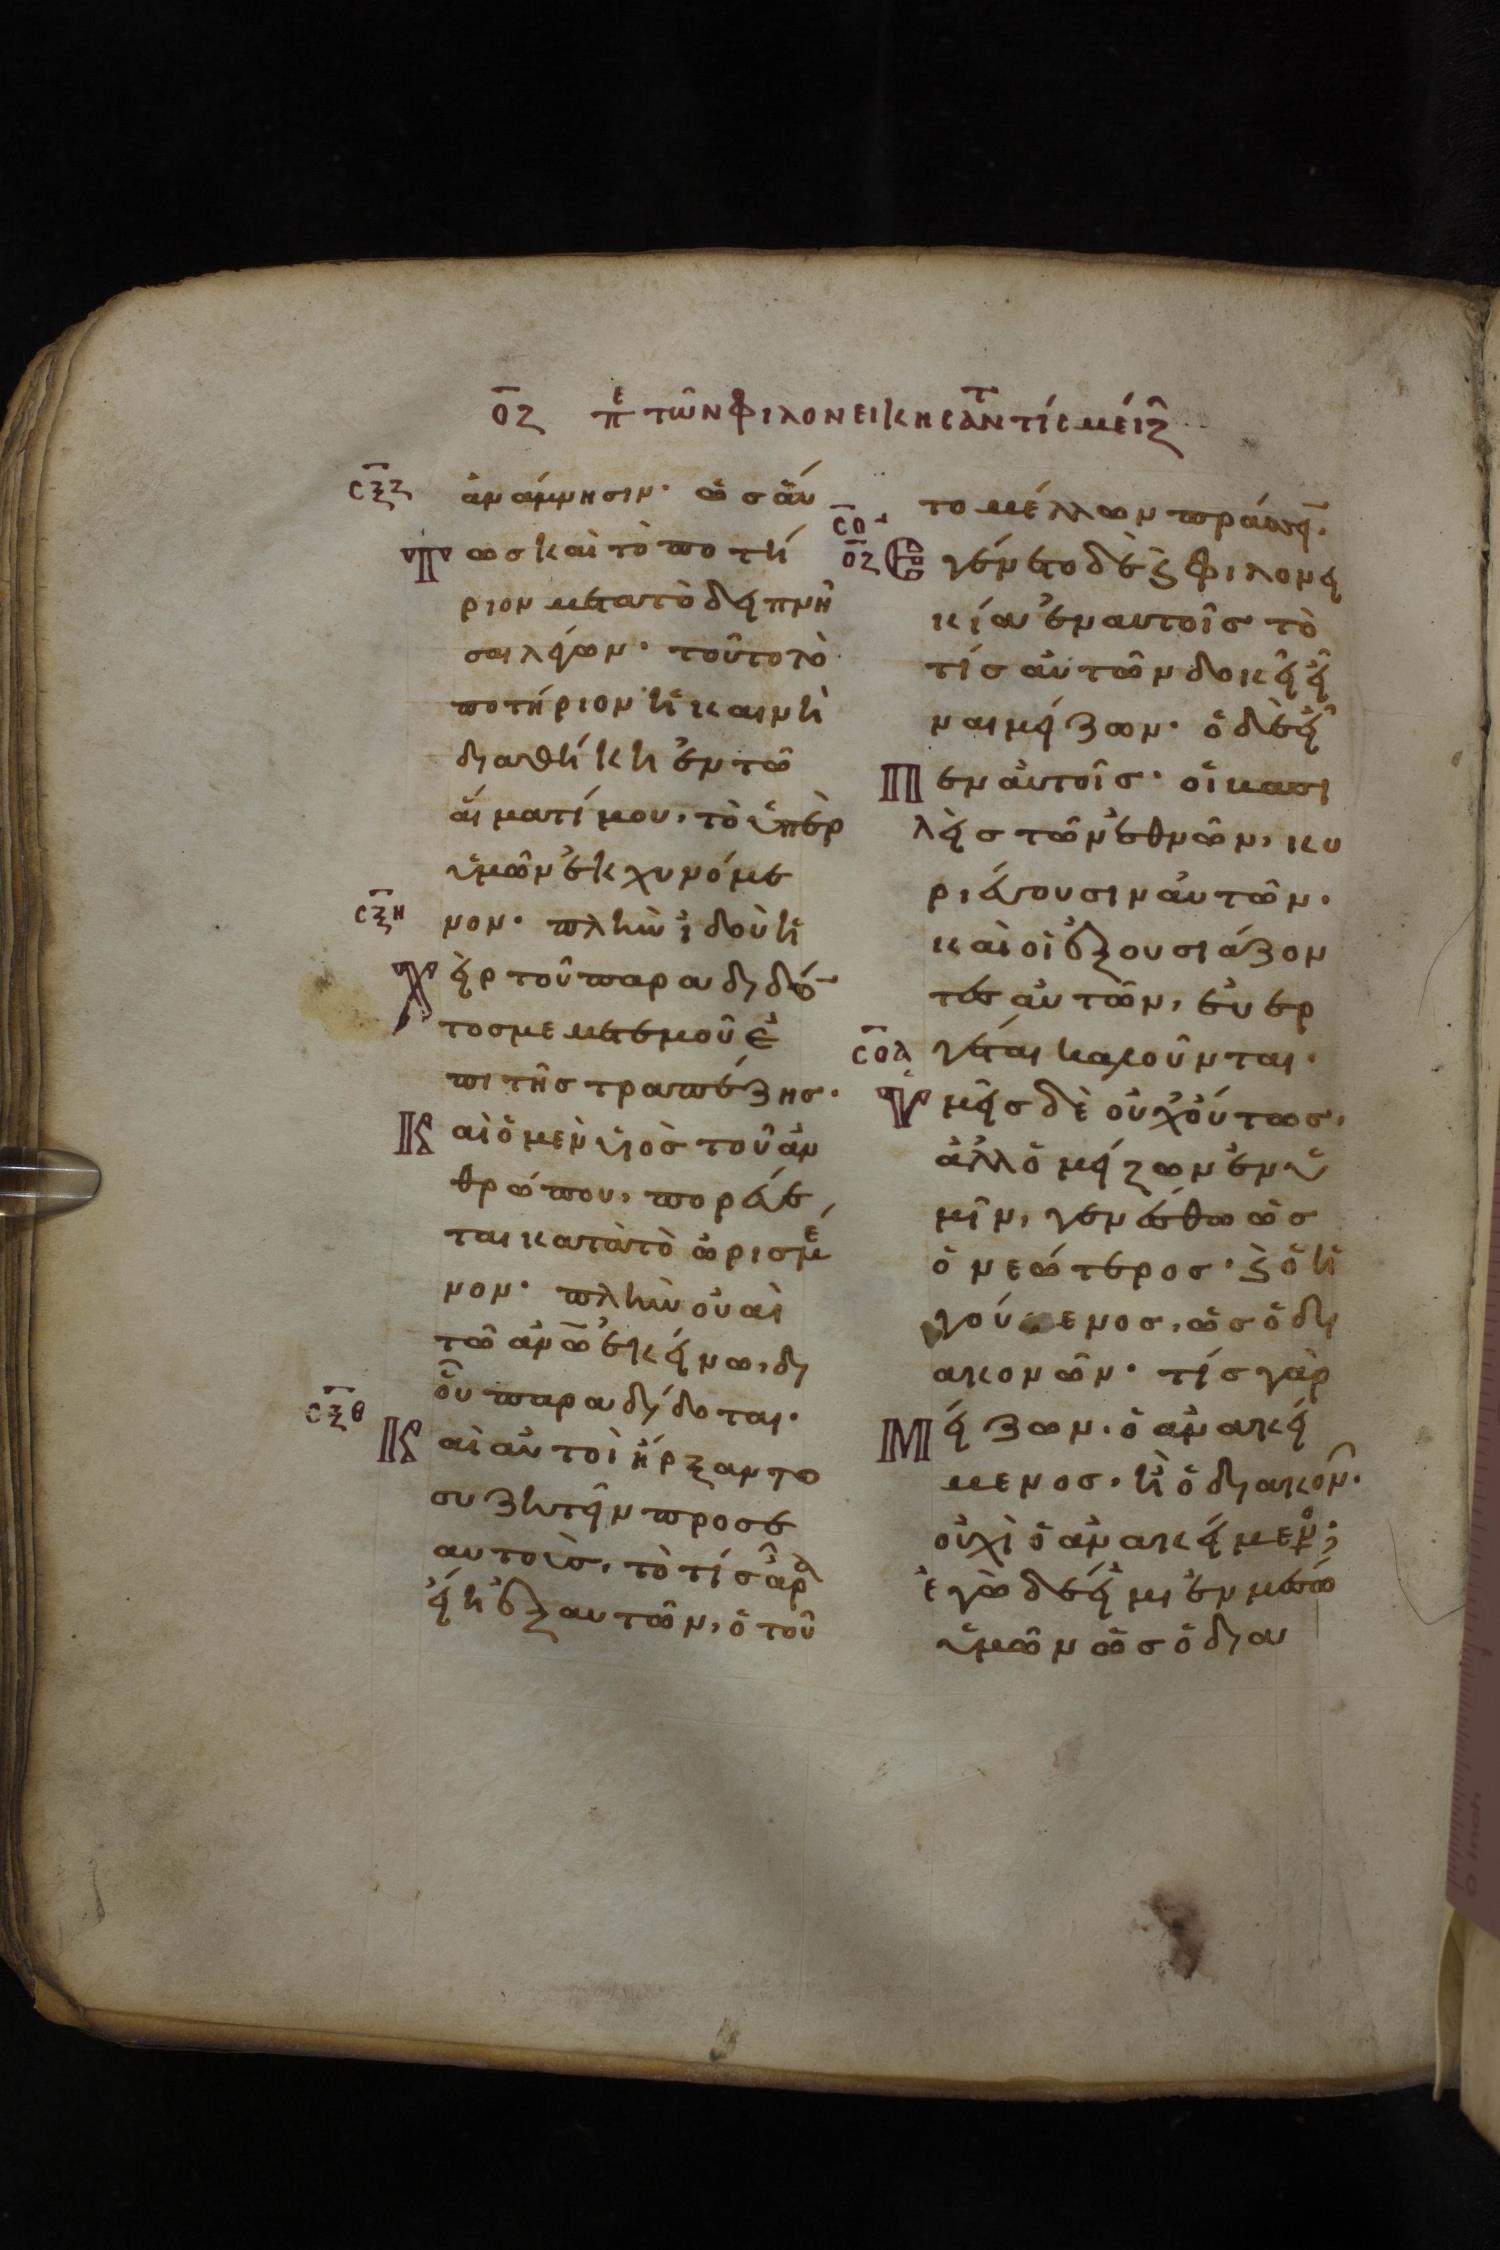 ος πε τῶν φιλονεικησάντ τίς μείζ
σξζ ἀνάμνησιν· ὡσάυ
τως καὶ τὸ ποτή
ριον μετα τὸ δειπνῆ
σαι λέγων· τοῦτο τὸ
ποτήριον ἡ καινὴ
διαθήκη ἐν τῶ
αἵματί μου, τὸ ὑπὲρ
ὑμῶν ἐκχυνόμε
σξη νον· πλὴν ἰδοὺ ἡ
Χεὶρ τοῦ παραδιδόν
τος με μετ εμοῦ ἐ
πι τῆς τραπέζης·
Καὶ ὁ μὲν υἱὸς τοῦ ἀν
θρώπου, πορέυε
ται κατὰ τὸ ὡρισμέ
νον· πλὴν οὐαὶ
τῶ ἀνω̅ ἐκείνω, δι
οὗ παραδίδοται·
σξθ Καὶ αὐτοὶ ἤρξαντο
συζητεῖν προσε
αυτοὺς, τὸ τίς ἆρα
εἴη ἐξ αυτῶν, ὁ τοῦ
το μέλλων πράσσειν·
σο οζ Εγένετο δὲ ϗ φιλονει
κία ἐν αυτοῖς τὸ
τίς αὐτῶν δοκεῖ εἶ
ναι μείζων· ὁ δὲ εἶ
Πεν ἀυτοῖς· οἱ βασι
λεῖς τῶν ἐθνῶν, κυ
ριέυουσιν αὐτῶν·
καὶ οἱ ἐξουσιάζον
τες αὐτῶν, ἐυερ
σοα γέται καλοῦνται·
Ὑμεῖς δὲ οὐχ ὅυτως,
ἀλλ ὁ μείζων ἐν ὑ
μῖν, γενέσθω ὡς
ὁ νεώτερος· ϗ ὁ ἡ
γούμενος, ὡς ὁ δι
ακονῶν· τίς γὰρ
Μείζων· ὁ ἀνακεί
μενος, ἢ ὁ διακον·
οὐχὶ ὁ ἀνακείμεν;
ἐγὼ δέ εἰμι ἐν μέσω
ὑμῶν ὡς ὁ δια